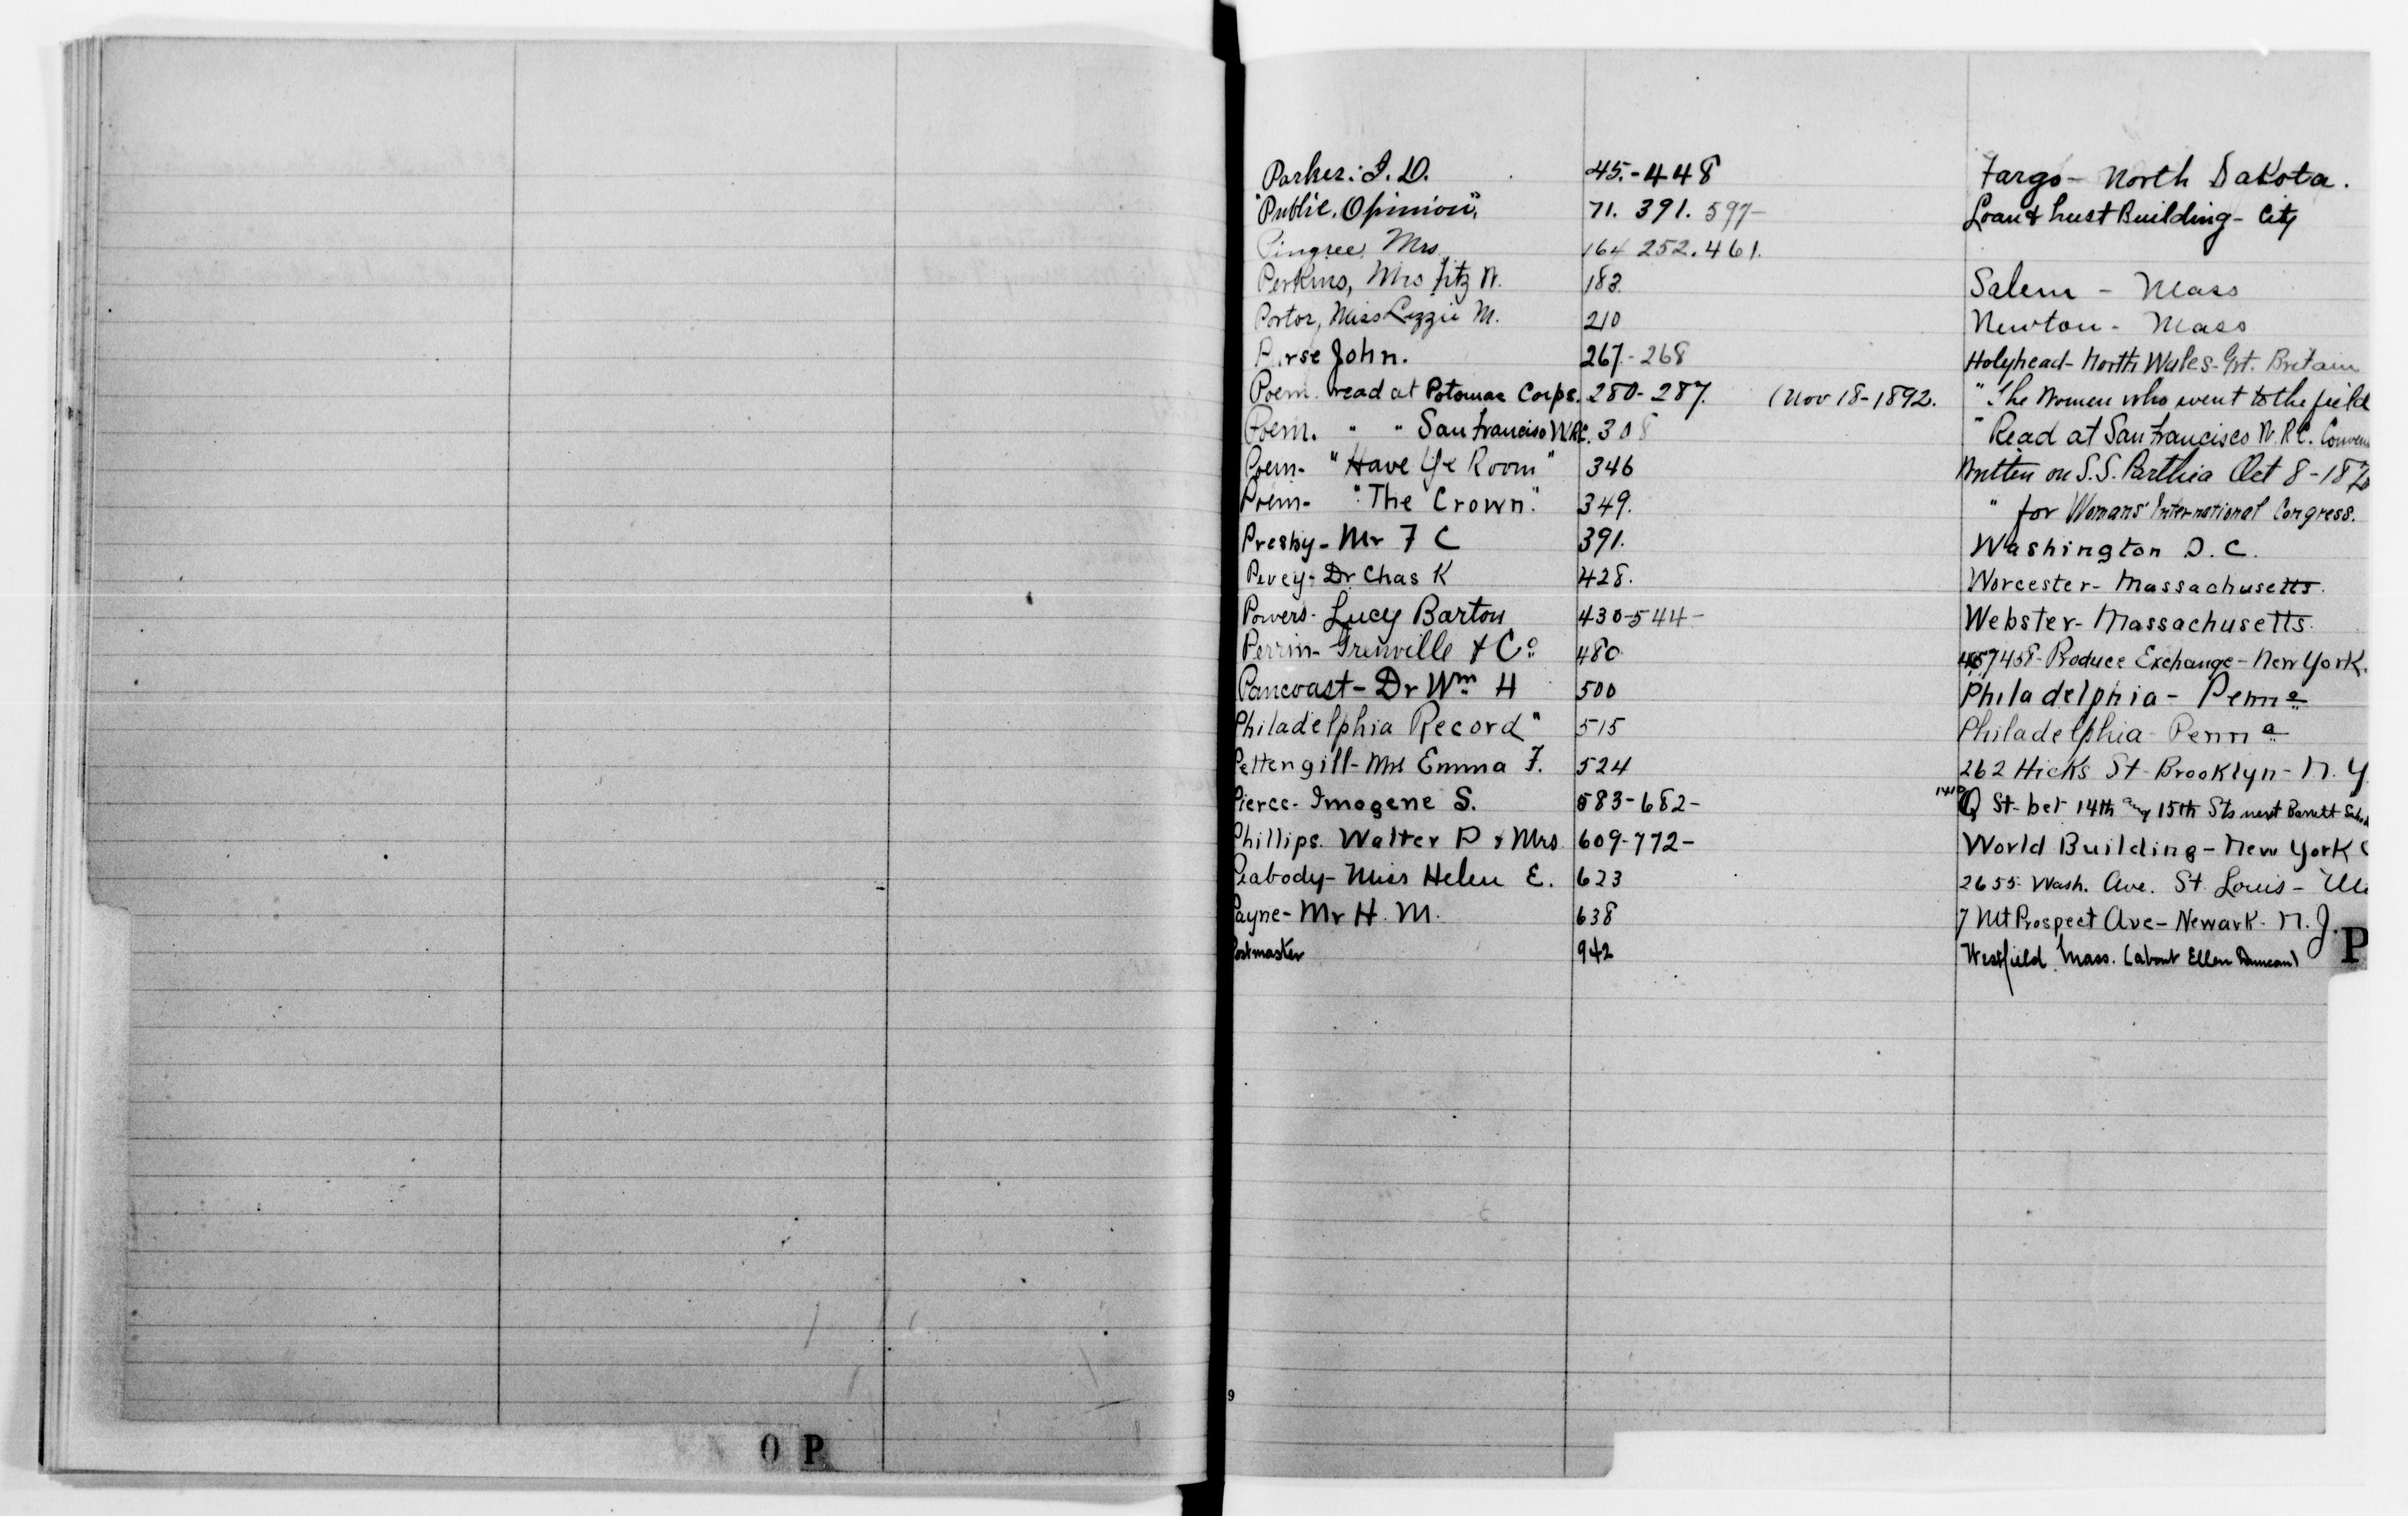 Parker. I. D. 45.-448 Fargo- North Dakota.
"Public. Opinion". 71. 391. 597- Loan & Trust Building- City
Pingree, Mrs 164 252. 461.
Perkins, Mrs Fitz W. 183. Salem - Mass
Portor, Miss Lizzie M. 210 Newton- Mass
Purse John. 267.-268 Holyhead- North Wales- Grt. Britain
Poem. read at Potomac Corps. 280-287. (Nov 18-1892. "The Women who went to the field
Poem. " " San Franciso W.R.C. 308 " Read at San Francisco W.R.C. Conven
Poem- "Have Ye Room" 346 Written on S.S. Parthia Oct 8-187
Poem- "The Crown." 349. " for Womans' International Congress.
Presby- Mr F C 391. Washington D.C.
Pevey- Dr Chas K 428. Worcester- Massachusetts.
Powers- Lucy Barton 430-544- Webster- Massachusetts.
Perrin- Grenville & Co 480 457 458- Produce Exchange- New York.
Pancoast- Dr Wm H 500 Philadelphia- Penna
Philadelphia Record" 515 Philadelphia- Penna
Pettengill- Mrs Emma F. 524 262 Hicks St- Brooklyn- N. Y.
Pierce- Imogene S. 583-682- 1410 Q St- bet 14th and 15th Sts next Barrett
Phillips. Walter P & Mrs 609-772- World Building- New York C
Peabody- Miss Helen E. 623 2655- Wash. Ave. St. Louis-
Payne- Mr H. M. 638 7 Mt Prospect Ave- Newark- N. J.
Postmaster 942 Westfield Mass. (about Ellen Duncan)
P
9
O P